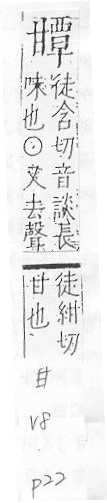 䐺
徒含切音談長
味也〇又去聲
徒紺切
甘也
甘
V8
p22